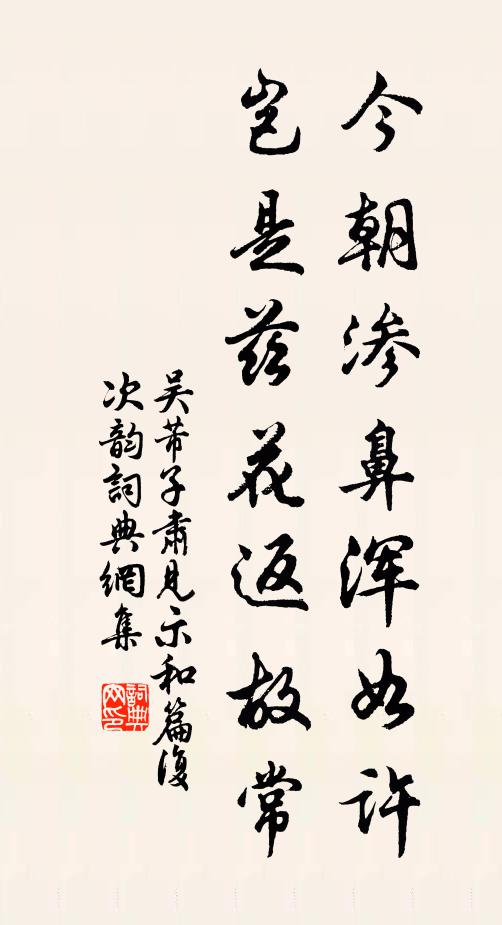 今朝渗鼻浑如许
岂是兹花返故常
吴芾子肃见示和篇复
次韵詞典網集
詞典网印